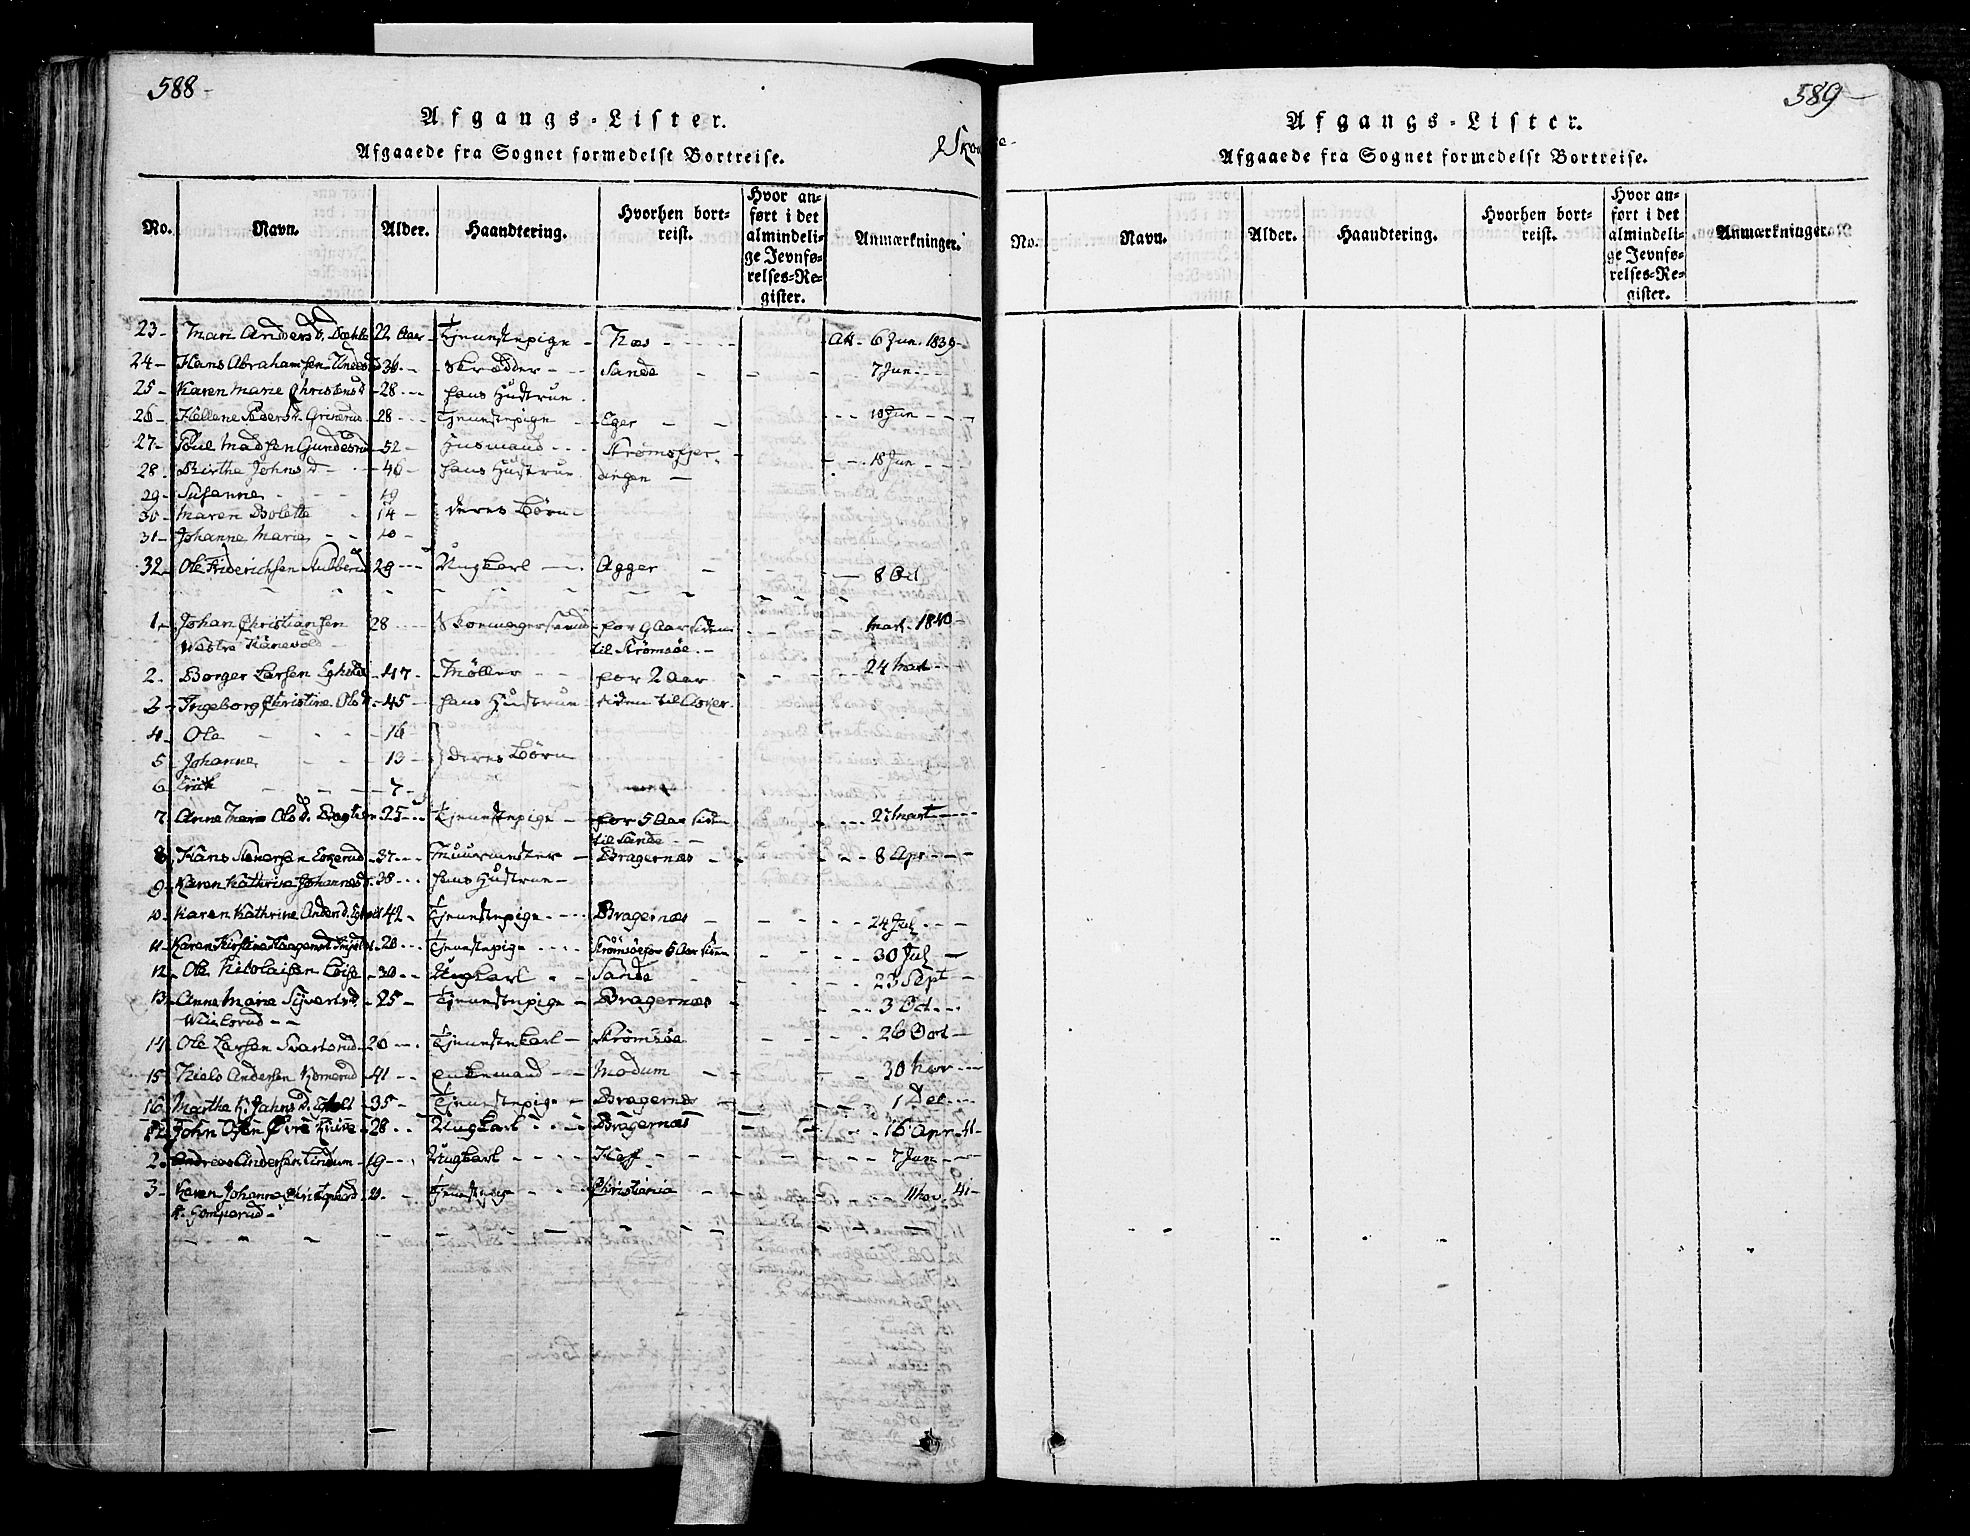 588-
Afgangs-Lister.
Afgaaede fra Sognet formedelst Bortreise.
No. Navn. Alder. Haandtering. Hvorhen bortreist. Hvor anført i det almindelige Jevnførelses-Register. Anmærkninger.
23- Mari Andersd. 22 Aar- Tjenestepige - Næs - Att. 6 Jun. 1839-
24- Hans Abrahamsen 36 - Skrædder - Sande - 7 Jun -
25- Karen Marie Christensd -28- hans Hustrue
26- Hellene Pedersd. 28 - Tjenestepige - Eger - 10 Jun -
27- Poul Madsen Gundesrud -52- Husmand - Strømsfjer-
28. Birthe Johnsd - 40 - hans Hustrue dingen - 18 Jun -
29- Susanne - 19
30- Maren Bolette - 14 - deres Børn -
31- Johanne Marie - 10 -
32- Ole Friderichsen Stubberud 29 - Ungkarl - Agger - 8 Oct
1- Johan Christiansen 28 - Skomagersvend - for 9 Aar siden - Mart. 1840-
Westre til Strømsøe. -
2- Borger Larsen -47- Møller - for 2 Aar - 24 Mart -
3- Ingeborg Christine Olsd -45- hans Hustrue siden til Asker
4- Ole - 16 -
5- Johanne - 13 - deres Børn
6 Erik - 7 -
7. Anne Marie Olsd. -25- Tjenestepige - for 5 Aar siden - 27 Mart -
til Sande -
8 Hans Stenersen -37- Muurmester - Bragernæs - 8 Apr -
9- Karen Kathrine Johannesd. 38 - hans Hustrue -
10- Karen Kathrine Andersd. 42 - Tjenestepige - Bragernæs - 24 Jul -
11- Karen Kirstine 20 - Tjenestepige - Strømsøe for 5 Aar siden 30 Jul -
12- Ole Nicolaisen -30- Ungkarl - Sande - 23 Sept -
13- Anne Marie Syvertsd. -25- Tjenestepige - Bragernæs - 3 Oct -
14- Ole Larsen Svartsrud -26- Tjenestekarl - Strømsøe - 26 Oct -
15- Niels Andersen Komerud -41- Enkemand - Modum - 30 Nov -
16- Marthe K. Jahnsd. -35- Tjenestepige - Bragernæs - 1 Dec -
1- John Olsen Øvre -28- Ungkarl - Bragernæs - 16 Apr. 41-
2. Andreas Andersen Lindum -19- Ungkarl - 7 Jun -
3- Karen Johanne - Tjenestepige - Christiania - 11 Nov. 41-
589-
Afgangs-Lister.
Afgaaede fra Sognet formedelst Bortreise.
No. Navn. Alder. Haandtering. Hvorhen bortreist. Hvor anført i det almindelige Jevnførelses-Register. Anmærkninger.